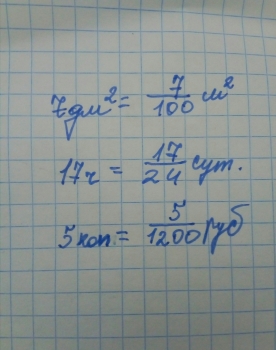 7дм² = 7/100 м²
17ч = 17/24 сут.
5коп = 5/1200 руб